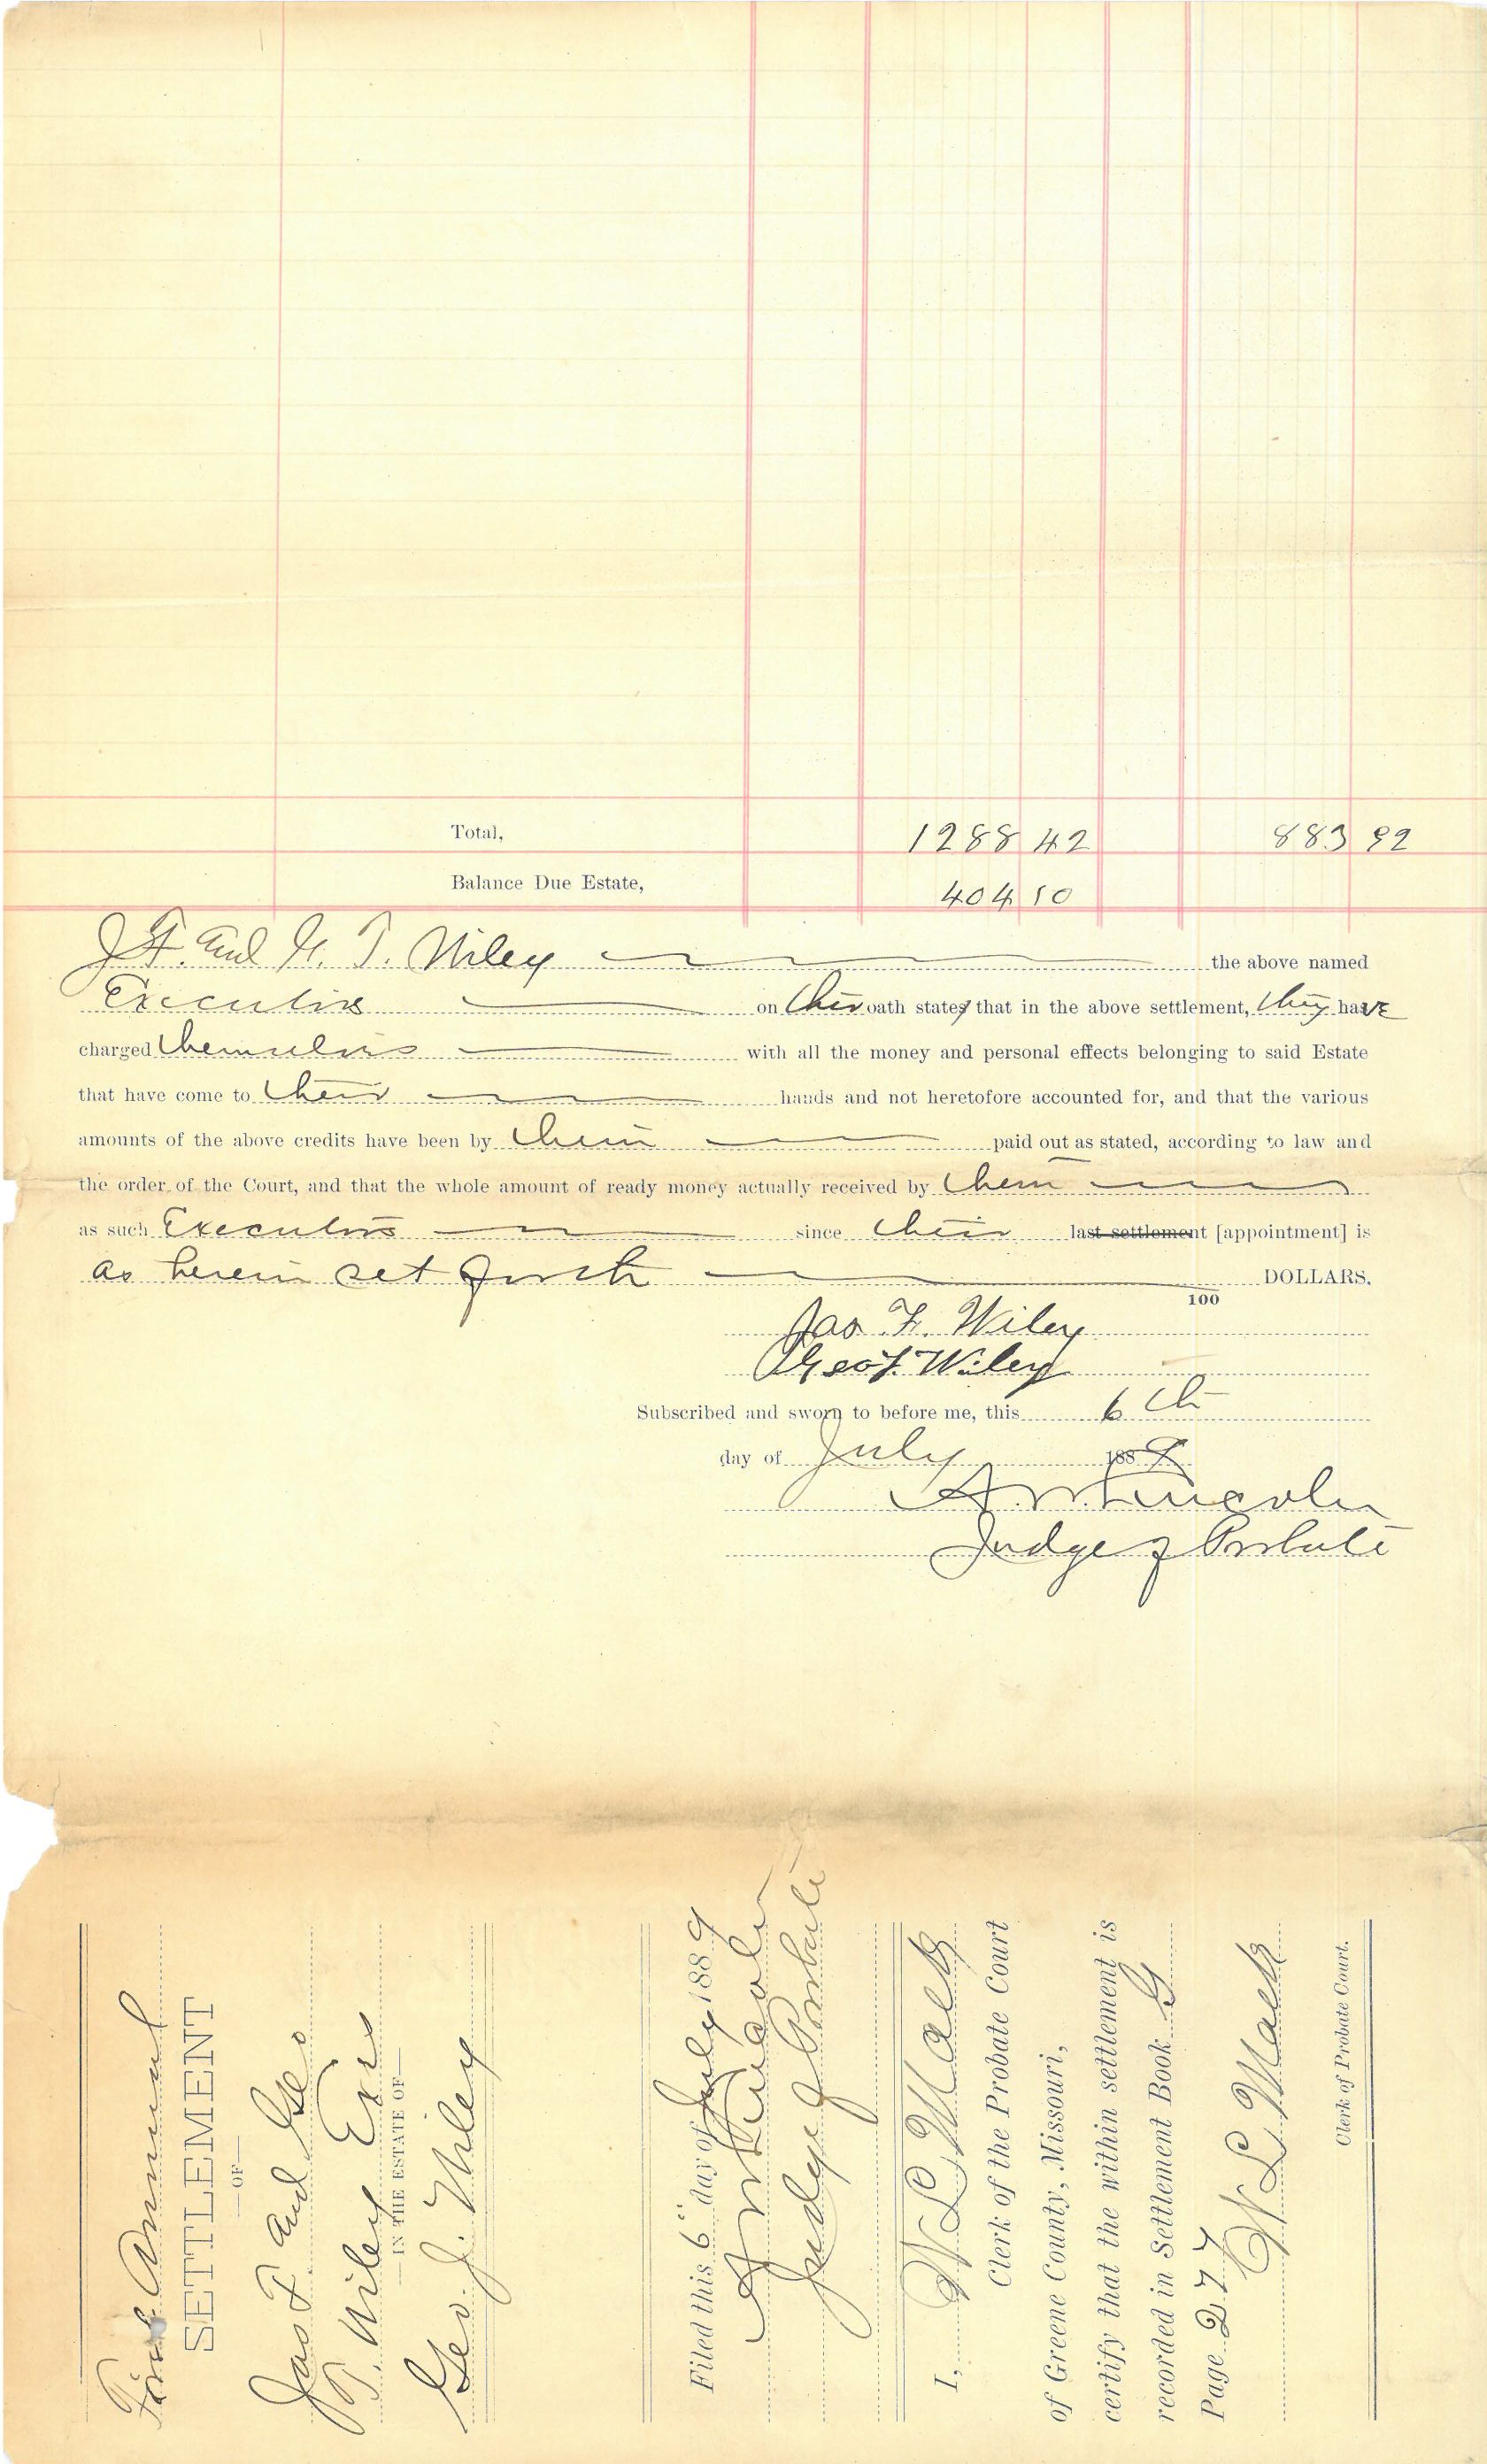 Total, 1288 42 883 92
Balance Due Estate, 404 10
J. F. and G. T. Wiley the above named
Executors on their oath states that in the above settlement, they have
charged themselves with all the money and personal effects belonging to said Estate
that have come to their hands and not heretofore accounted for, and that the various
amounts of the above credits have been by them paid out as stated, according to law and
the order of the Court, and that the whole amount of ready money actually received by them
as such Executors since their last settlement [appointment] is
as herein set forth DOLLARS.
100
Jas. F. Wiley
Geo T. Wiley
Subscribed and sworn to before me, this 6th
day of July 1889
A. W. Lincoln
Judge of Probate
First Annual
SETTLEMENT
—OF—
Jas F. and Geo
T. Wiley Exrs
—IN THE ESTATE OF—
Geo. J. Wiley
Filed this 6" day of July 1889
A W Lincoln
Judge of Probate
I, W L Mack
Clerk of the Probate Court
of Greene County, Missouri,
certify that the within settlement is
recorded in Settlement Book G
Page 277
W L Mack
Clerk of Probate Court.